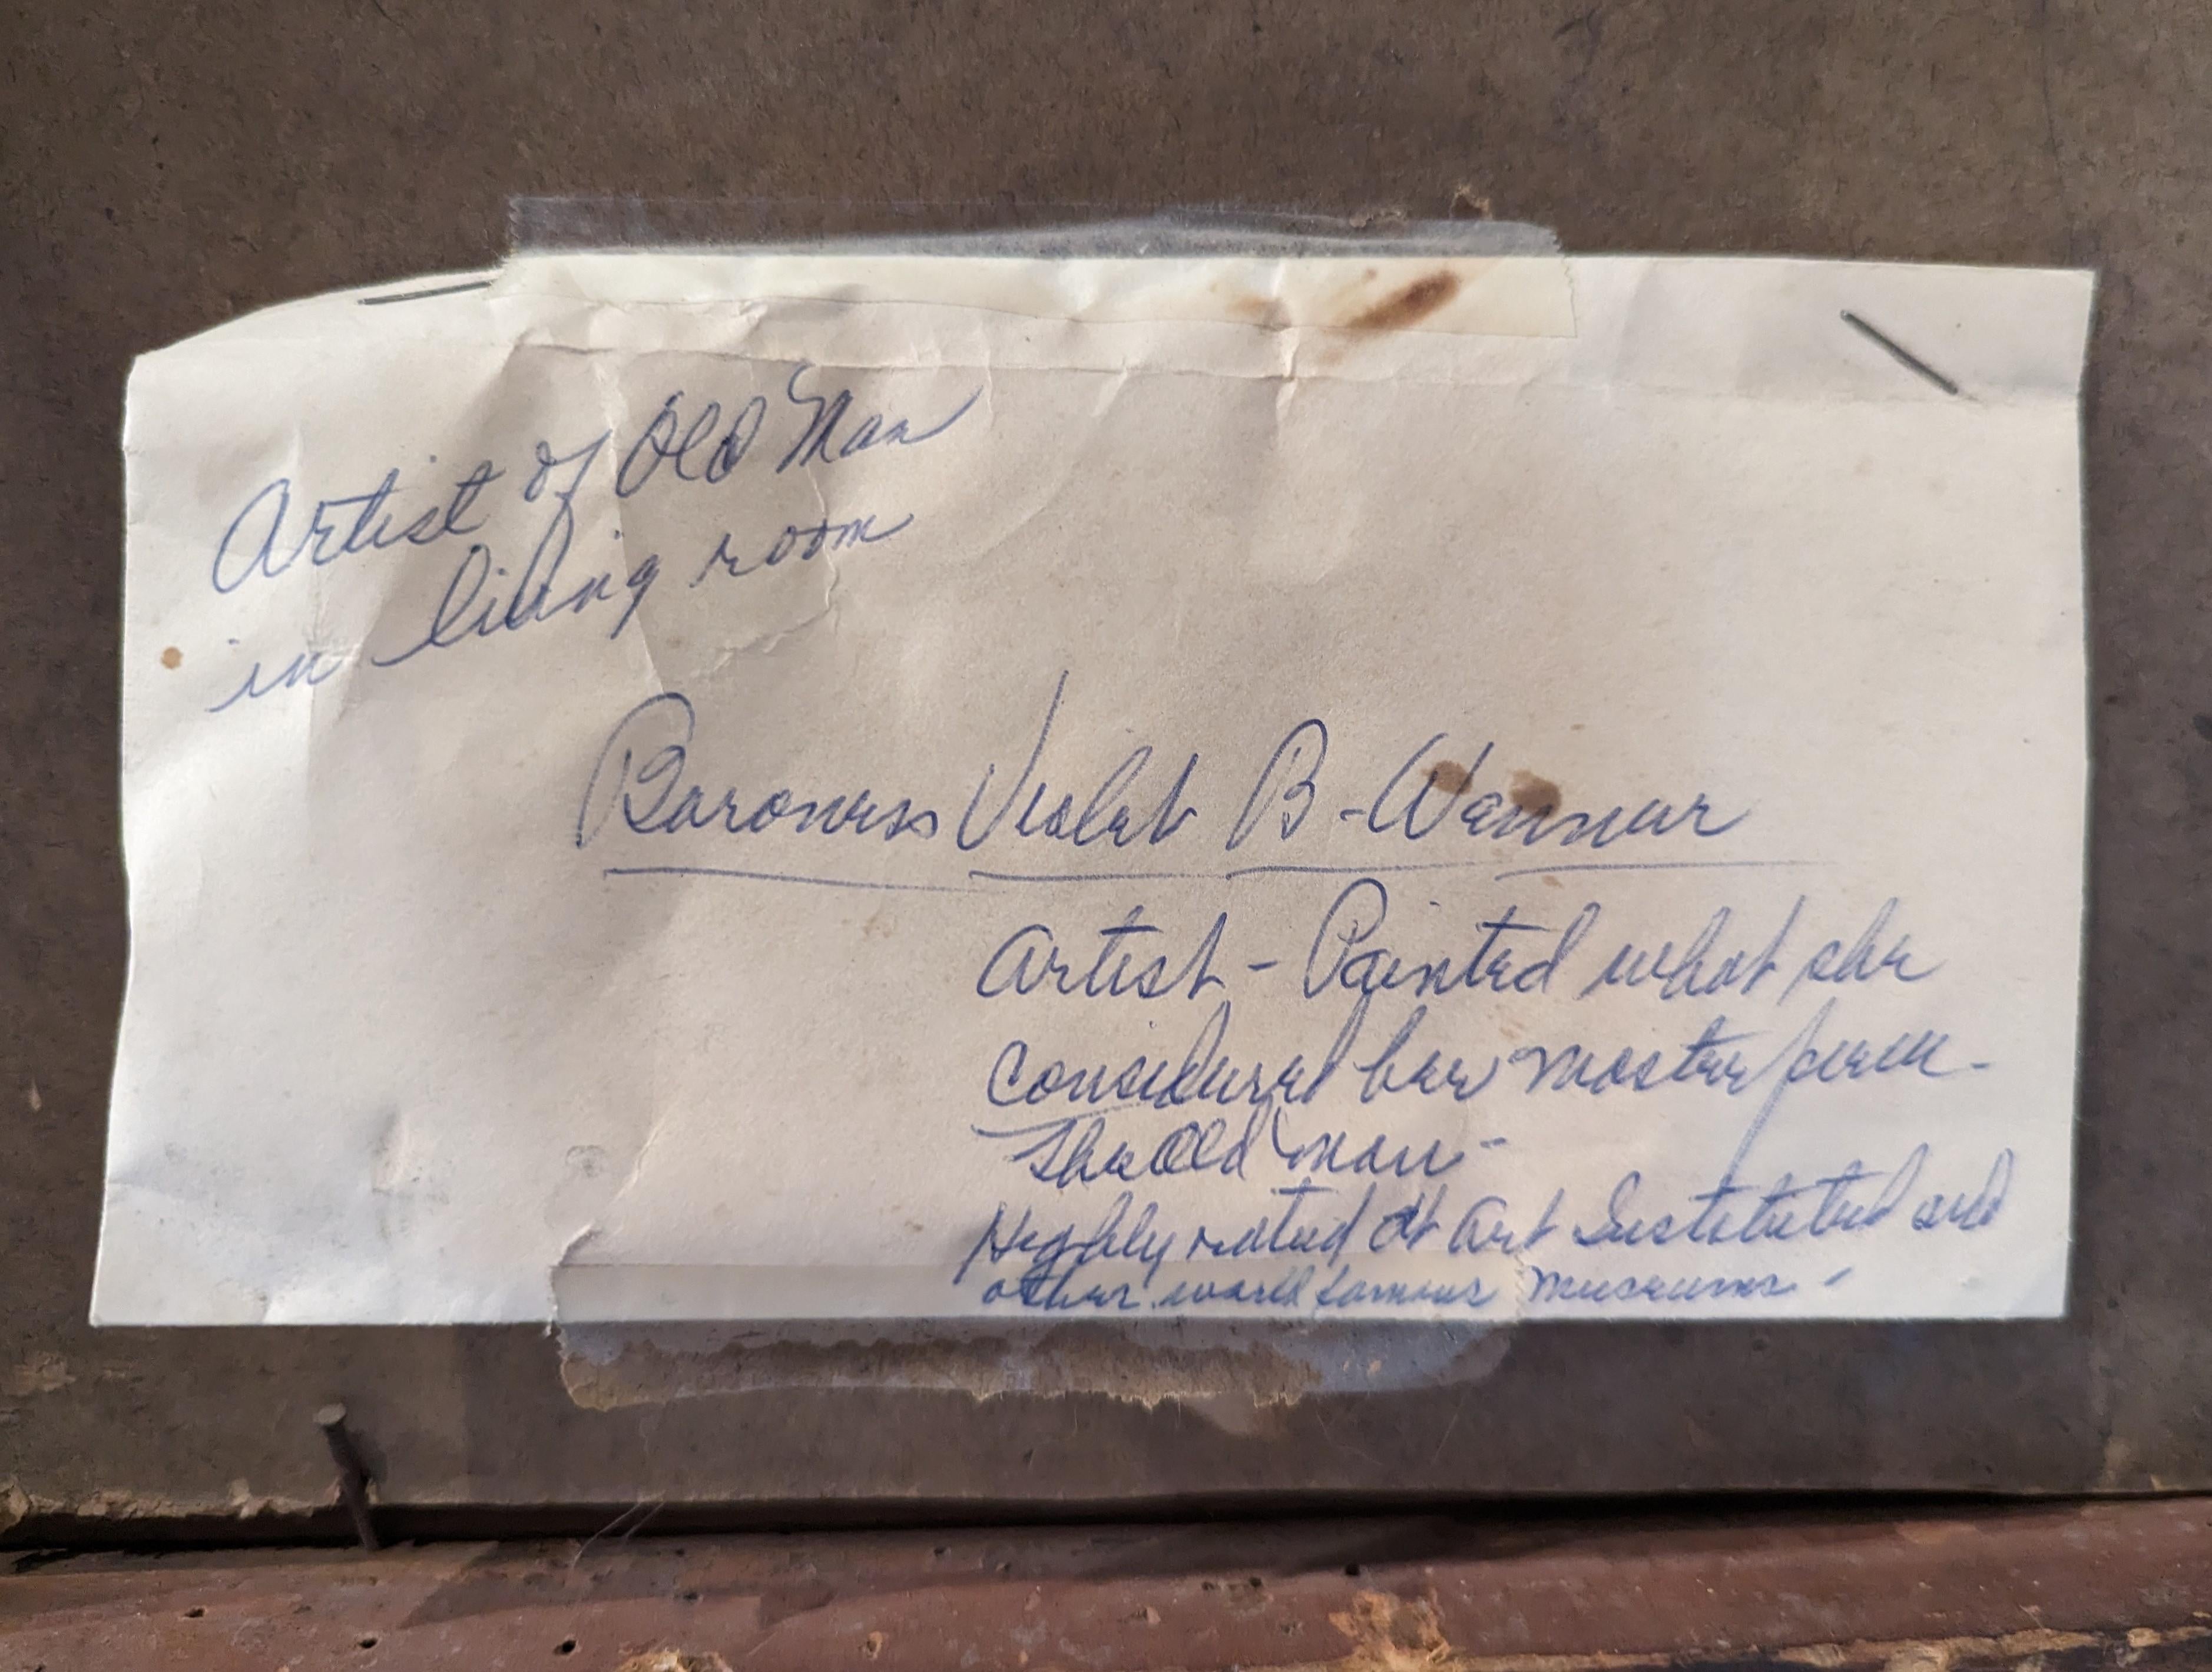 Artist of Old Man
in living room
Baroness Violet B-Wenner
Artist - Painted what she
considered her masterpiece -
The Old man -
Highly rated at Art Institute and
other world famous museums -